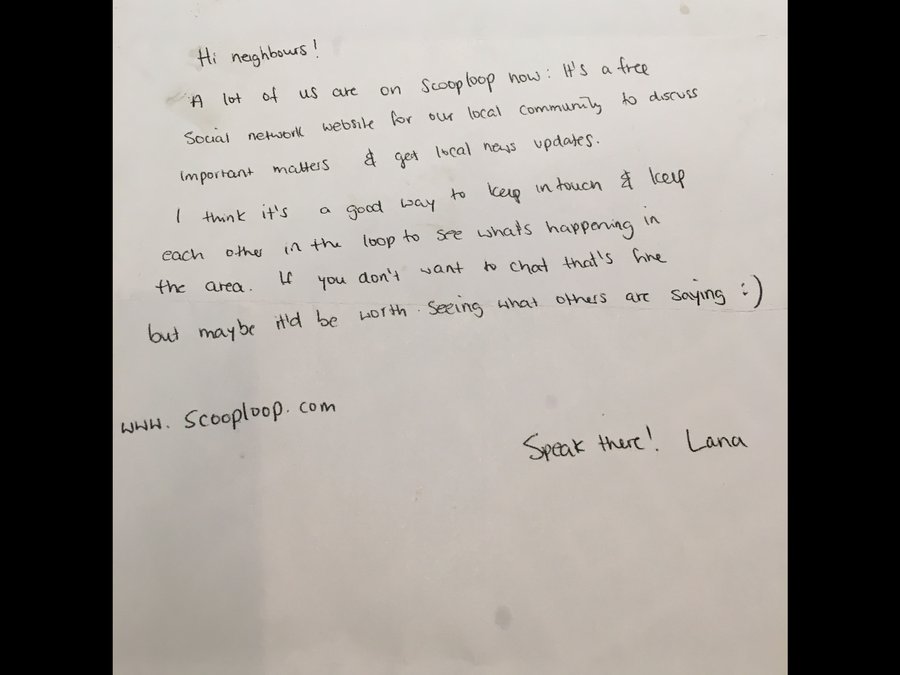 Hi neighbours!
A lot of us are on Scooploop now: It's a free
Social network website for our local community to discuss
important matters & get local news updates.
I think it's a good way to keep in touch & keep
each other in the loop to see what's happening in
the area. If you don't want to chat that's fine
but maybe it'd be worth seeing what others are saying :)
www.scooploop.com
Speak there! Lana